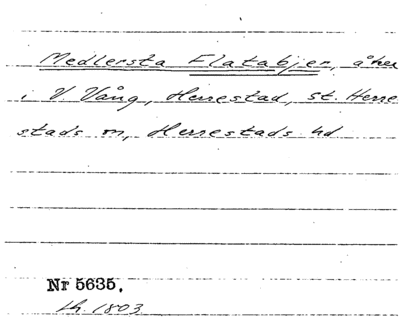 Medlersta Flatabjer, åker
i V Vång, Herrestad, St. Herre
stads sn, Herrestads hd
Nr 5635.
th. 1803